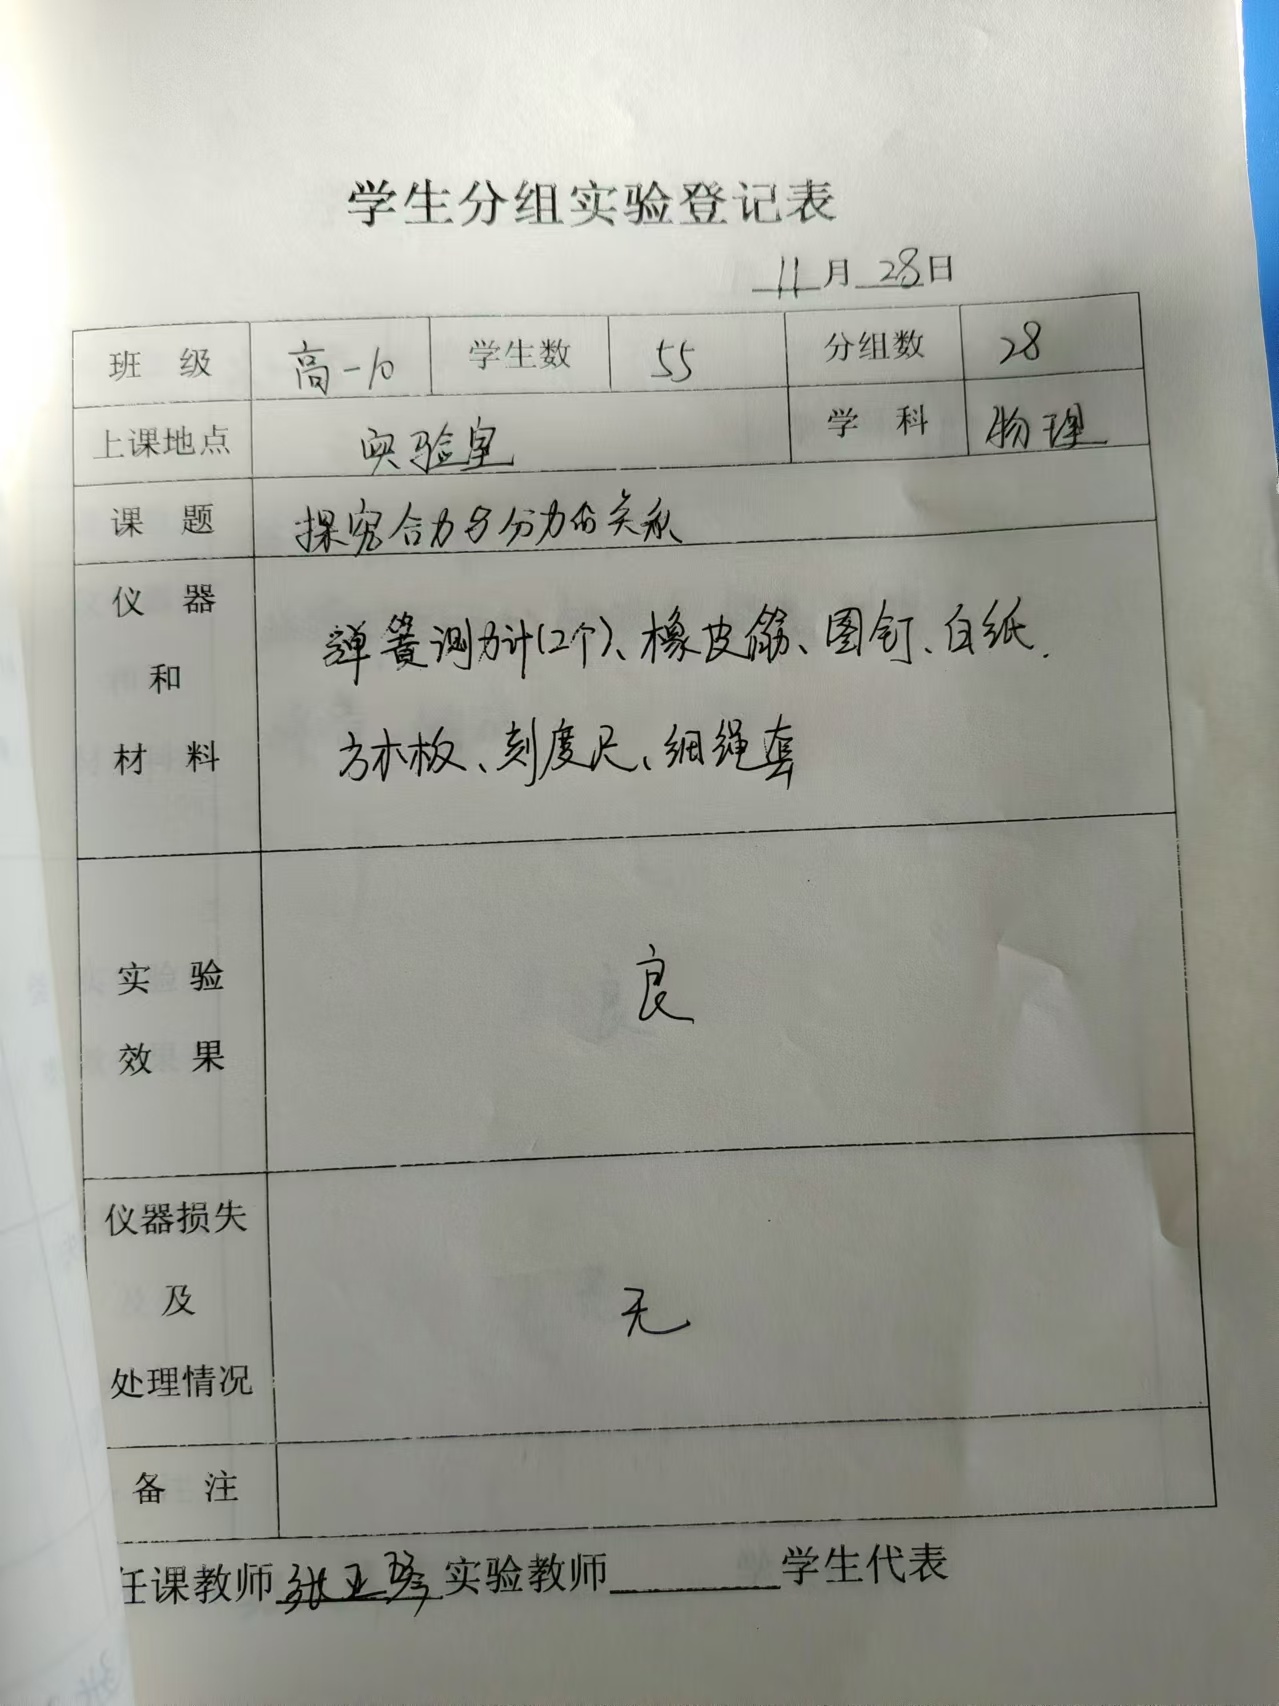 学生分组实验登记表
11月28日
班 级 高一10 学生数 55 分组数 28
上课地点 实验室 学 科 物理
课 题 探究合力与分力的关系
仪 器
和
材 料
弹簧测力计(2个)、橡皮筋、图钉、白纸.
方木板、刻度尺、细绳套
实 验
效 果
良
仪器损失
及
处理情况
无
备 注
任课教师 张亚 实验教师 学生代表